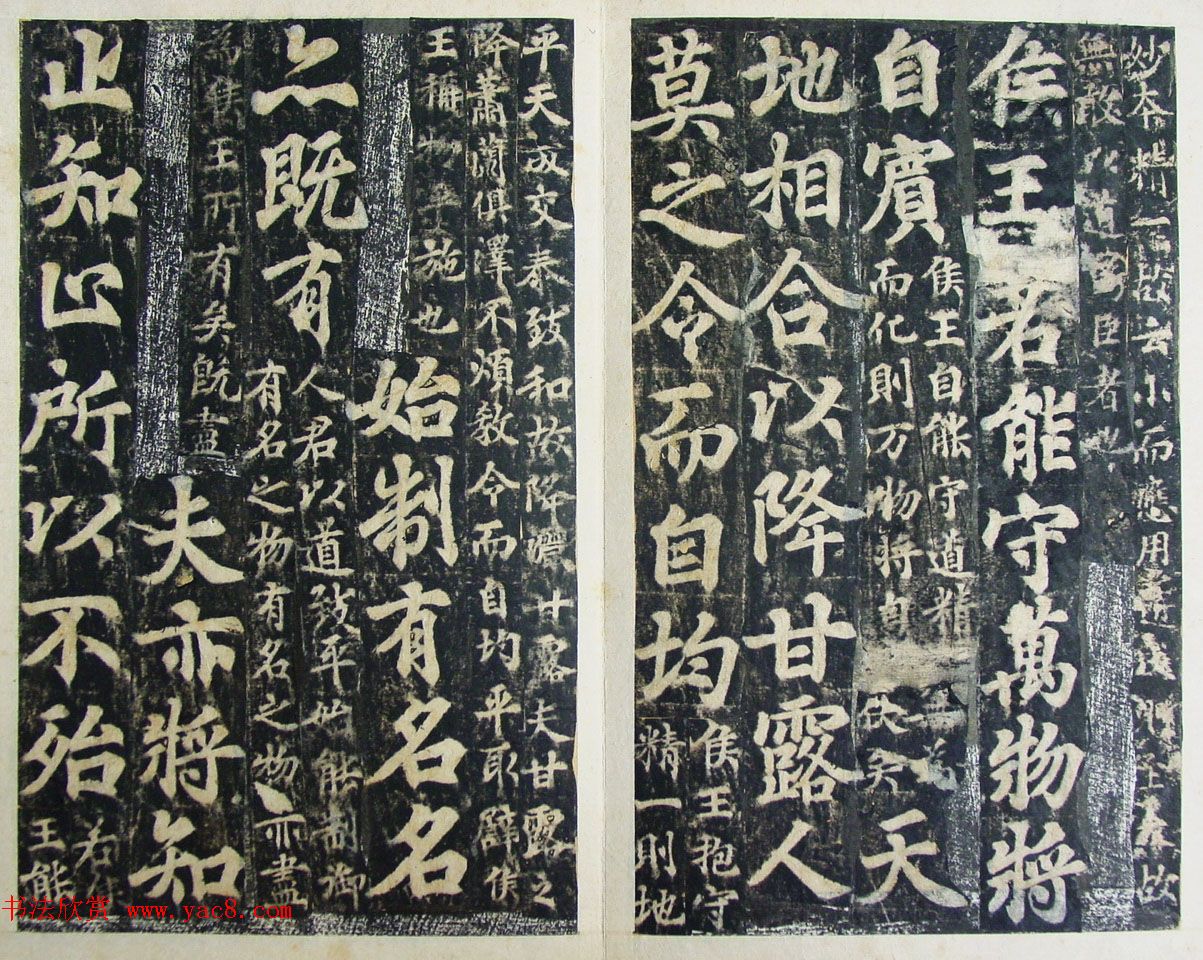 妙本精一故云小而應用
無敢以道為臣者
侯王若能守萬物將
自賓
侯王自能守道精 為
而化則万物將自 伏矣
天
地相合以降甘露人
莫之令而自均
侯王抱守
精一則地
平天成交泰致和故降灑甘露夫甘露之
降蕭蘭俱澤不煩教令而自均平取辟侯
王稱物平施也
始制有名名
亦既有
人君以道致平始能制御
有名之物有名之物亦盡
為侯王所有矣既盡
夫亦將知
止知止所以不殆
若侯
王能
书法欣赏 www.yac8.com